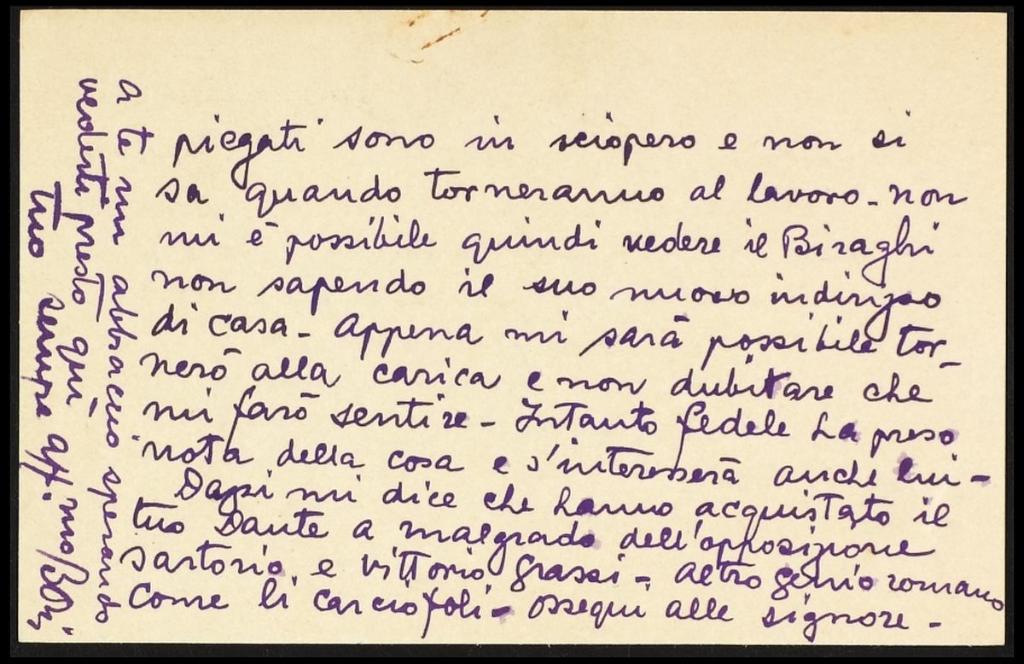 piegati sono in sciopero e non si
sa quando torneranno al lavoro - non
mi è possibile quindi vedere il Biraghi
non sapendo il suo nuovo indirizzo
di casa - appena mi sarà possibile tor-
nerò alla carica e non dubitare che
mi farò sentire - Intanto fedele ha preso
nota della cosa e s'interesserà anche lui -
Dazi mi dice che hanno acquistato il
tuo Dante a malgrado dell'opposizione
Sartorio e Vittorio Grassi - altro genio romano
come li carciofoli - ossequi alle signore -
a te un abbraccio sperando
vederti presto qui
tuo sempre aff.mo